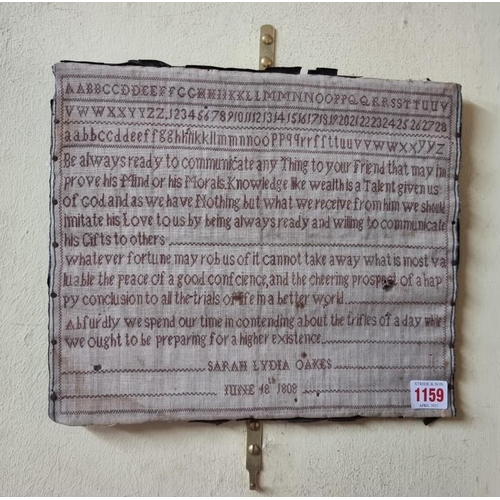 AABBCCDDEEFFGGHHIIKKLLMMNNOOPPQQRRSSTTUUV
VWWXXYYZZ,1234567891011121314151617181920212223242526 2728
aabbccddeeffgghhiikkllmmnnooppqqrrſsttuuvvwwxxyyz
Be always ready to communicate any Thing to your friend that may im
prove his Mind or his Morals. Knowledge like wealth is a Talent given us
of God, and as we have Nothing but what we receive from him we should
imitate his Love to us by being always ready and willing to communicate
his Gifts to others
whatever fortune may rob us of it cannot take away what is most va
luable the peace of a good conſcience, and the cheering prospect of a hap
py conclusion to all the trials of life in a better world
Abſurdly we spend our time in contending about the trifles of a day while
we ought to be preparing for a higher existence
SARAH LYDIA OAKES
JUNE 18th 1808
1159
APRIL 2022